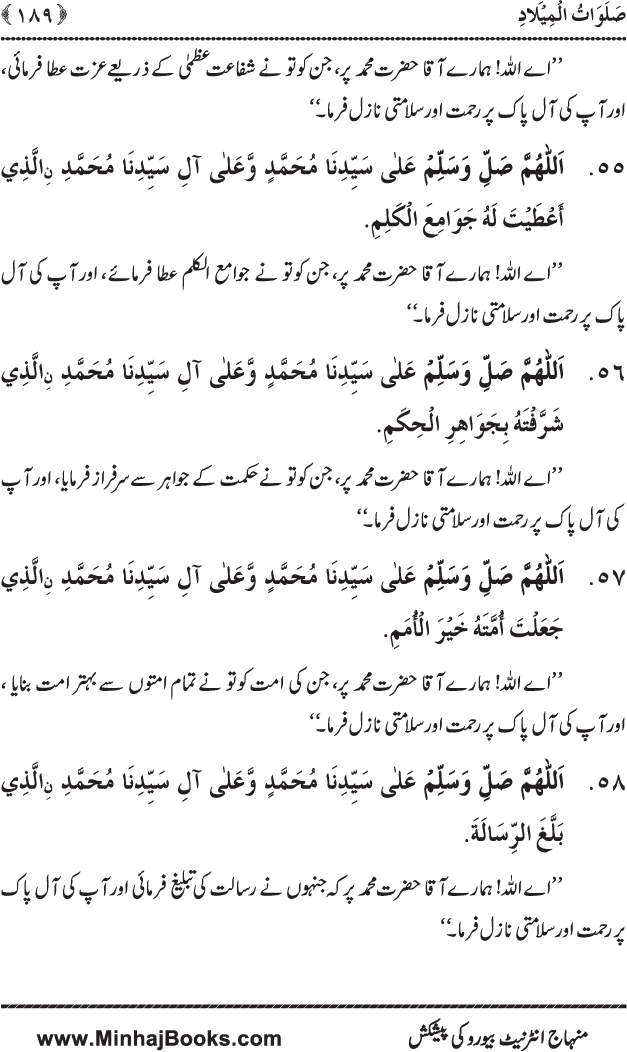 صَلَوَاتُ الْمِيْلَادِ ﴿١٨٩﴾
’’اے اللہ! ہمارے آقا حضرت محمد پر، جن کو تو نے شفاعت عظمیٰ کے ذریعے عزت عطا فرمائی،
اور آپ کی آل پاک پر رحمت اور سلامتی نازل فرما۔‘‘
٥٥. اَللّٰهُمَّ صَلِّ وَسَلِّمْ عَلٰى سَيِّدِنَا مُحَمَّدٍ وَّعَلٰى آلِ سَيِّدِنَا مُحَمَّدِ نِ الَّذِي
أَعْطَيْتَ لَهُ جَوَامِعَ الْكَلِمِ.
’’اے اللہ! ہمارے آقا حضرت محمد پر، جن کو تو نے جوامع الکلم عطا فرمائے، اور آپ کی آل
پاک پر رحمت اور سلامتی نازل فرما۔‘‘
٥٦. اَللّٰهُمَّ صَلِّ وَسَلِّمْ عَلٰى سَيِّدِنَا مُحَمَّدٍ وَّعَلٰى آلِ سَيِّدِنَا مُحَمَّدِ نِ الَّذِي
شَرَّفْتَهُ بِجَوَاهِرِ الْحِكَمِ.
’’اے اللہ! ہمارے آقا حضرت محمد پر، جن کو تو نے حکمت کے جواہر سے سرفراز فرمایا، اور آپ
کی آل پاک پر رحمت اور سلامتی نازل فرما۔‘‘
٥٧. اَللّٰهُمَّ صَلِّ وَسَلِّمْ عَلٰى سَيِّدِنَا مُحَمَّدٍ وَّعَلٰى آلِ سَيِّدِنَا مُحَمَّدِ نِ الَّذِي
جَعَلْتَ أُمَّتَهُ خَيْرَ الْأُمَمِ.
’’اے اللہ! ہمارے آقا حضرت محمد پر، جن کی امت کو تو نے تمام امتوں سے بہتر امت بنایا،
اور آپ کی آل پاک پر رحمت اور سلامتی نازل فرما۔‘‘
٥٨. اَللّٰهُمَّ صَلِّ وَسَلِّمْ عَلٰى سَيِّدِنَا مُحَمَّدٍ وَّعَلٰى آلِ سَيِّدِنَا مُحَمَّدِ نِ الَّذِي
بَلَّغَ الرِّسَالَةَ.
’’اے اللہ! ہمارے آقا حضرت محمد پر کہ جنہوں نے رسالت کی تبلیغ فرمائی اور آپ کی آل پاک
پر رحمت اور سلامتی نازل فرما۔‘‘
منہاج انٹرنیٹ بیورو کی پیشکش www.MinhajBooks.com